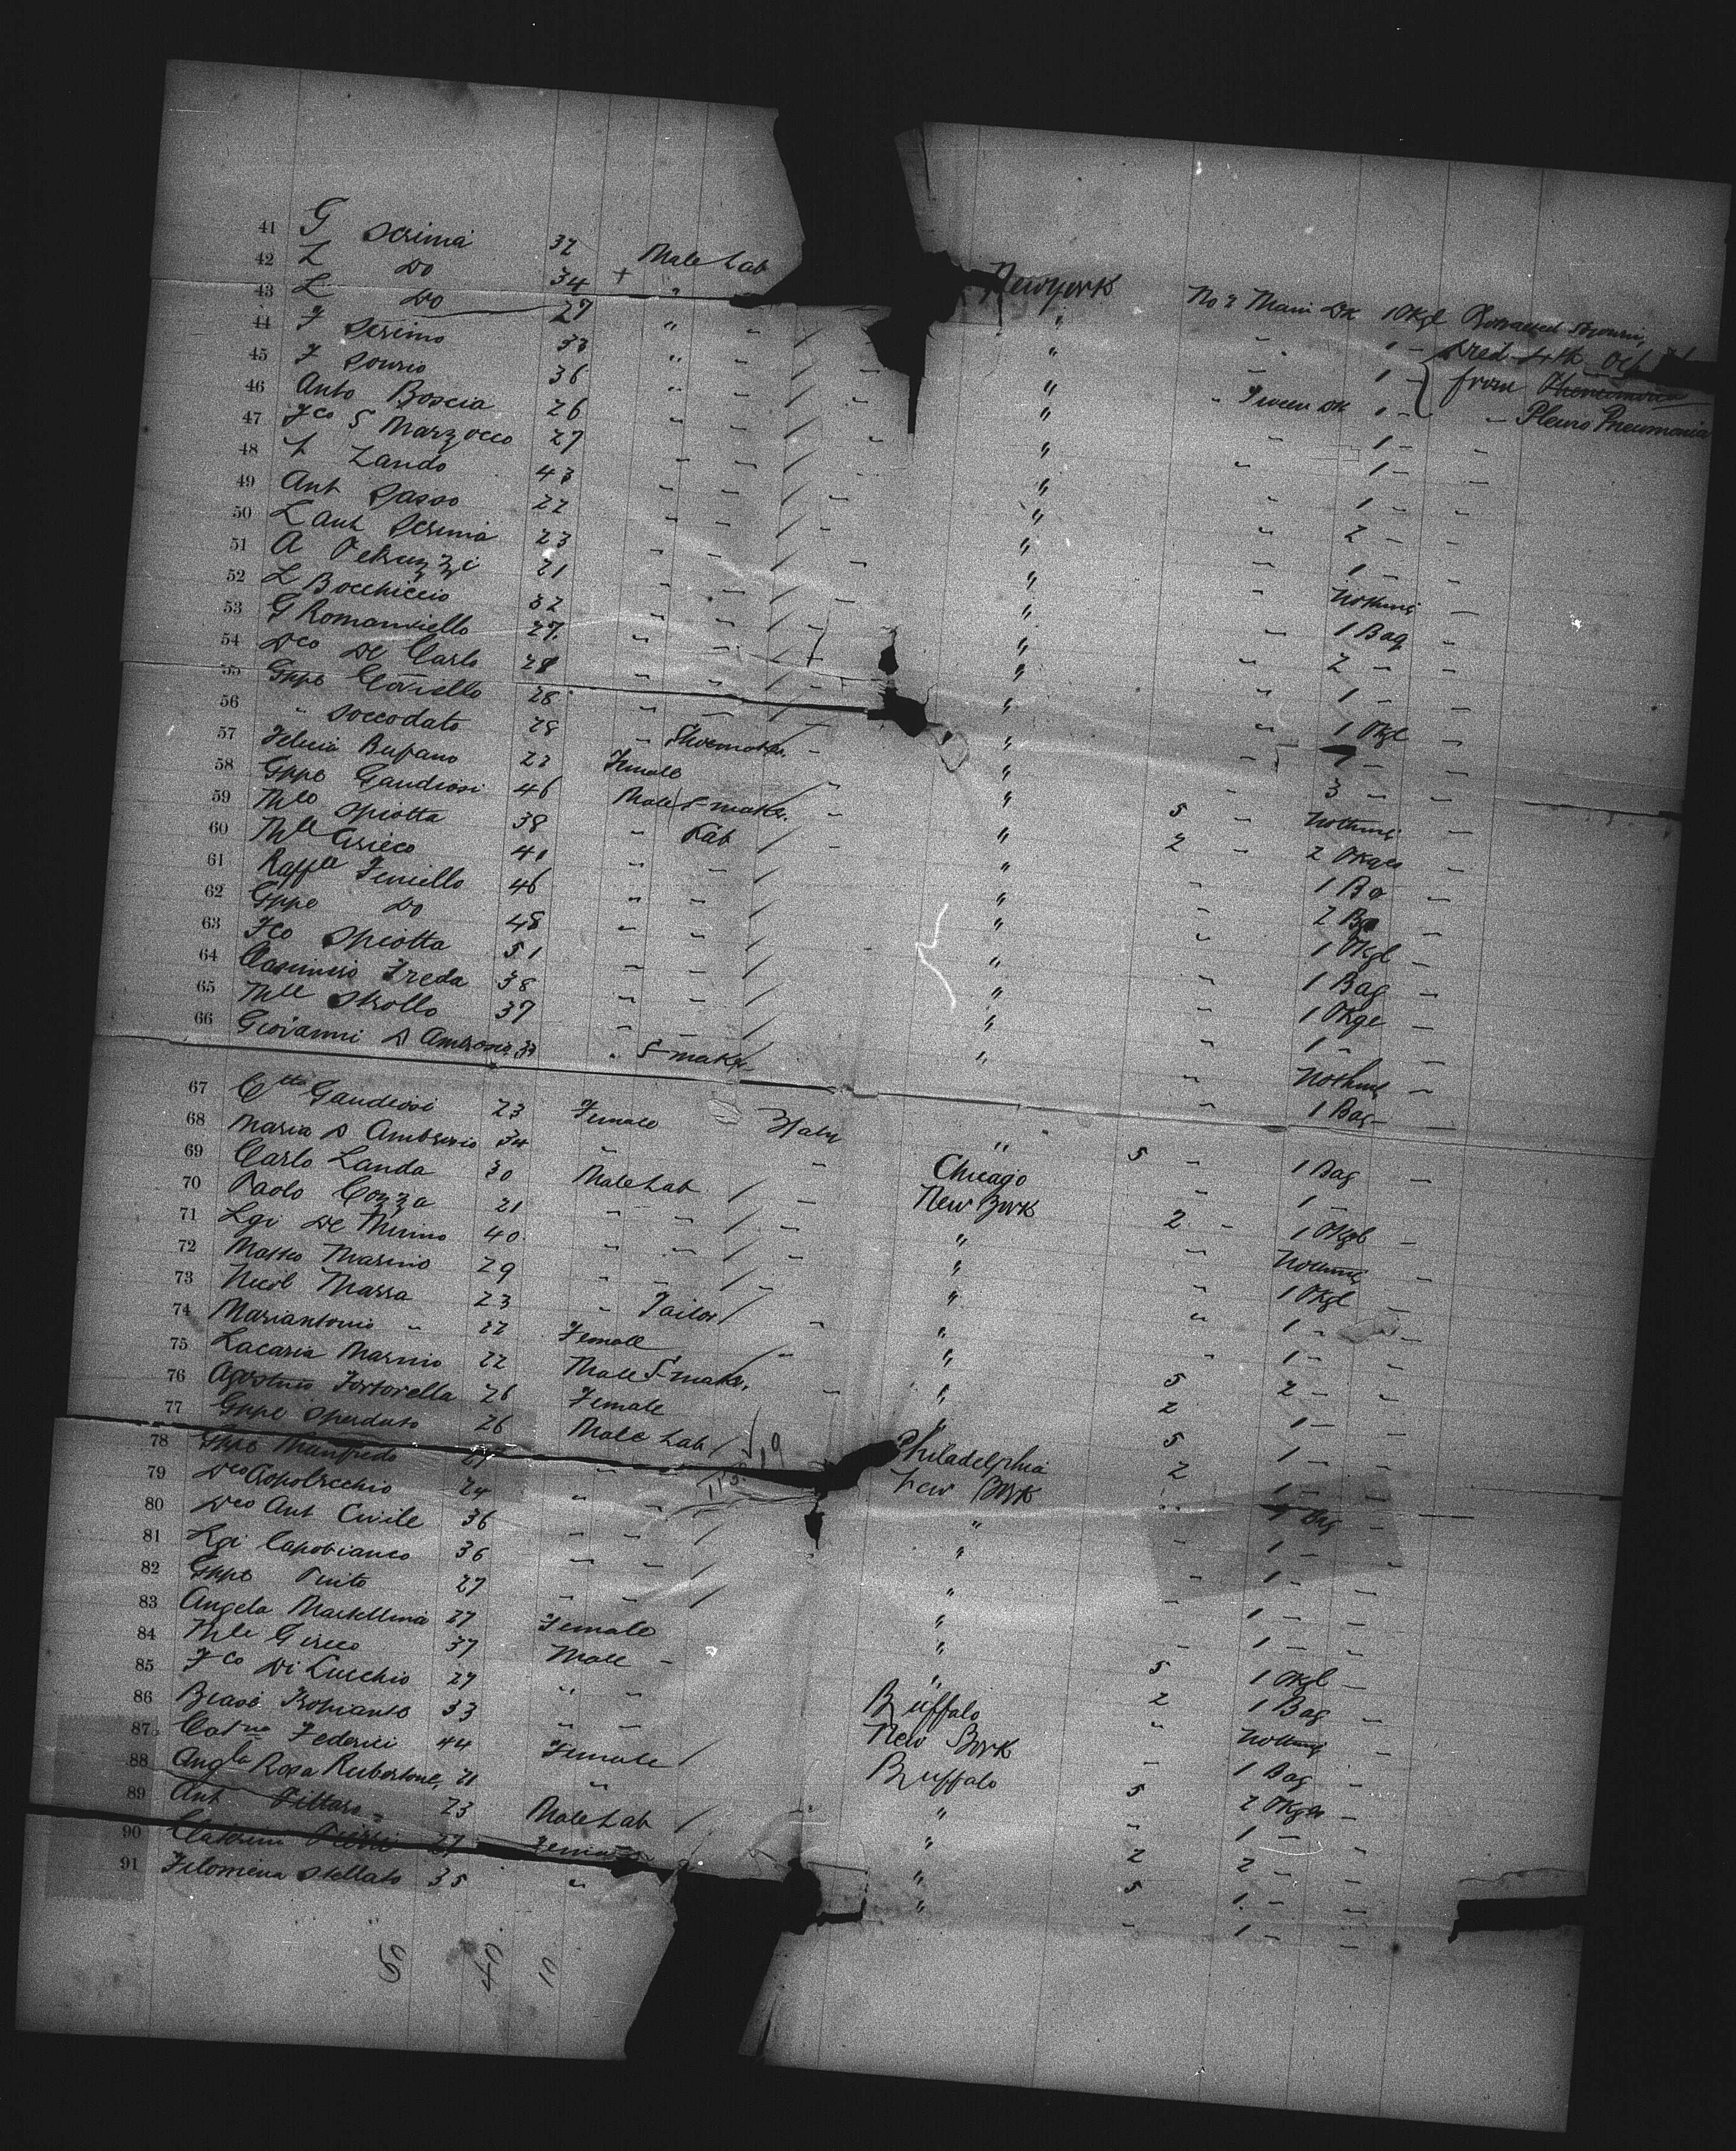 41 G Scrima 32 Male Lab New York No 2 Main Dk 1 Pkge Protracted Sojourn
42 L Do 34 + " " 1 - Died 4th Oct
43 L Do 27 " - / - " 1 - from Pneumonia
44 F Serino 33 " - / - " - Tween Dk 1 - - Pleuro Pneumonia
45 F Sourio 36 " - / - " - 1 - -
46 Anto Boscia 26 - - / - " - 1 - -
47 Fco S Marzocco 27 - - / - " - 1 - -
48 Lando 43 - - / - " - 2 - -
49 Ant Sasso 22 - - / - " - 1 - -
50 L Ant Scrima 23 - - / - " - Nothing -
51 A Petruzzi 21 - - / - " - 1 Bag -
52 L Bocchiccio 32 - - / - " - 2 - -
53 G Romaniello 27 - - / - " - 1 - -
54 Dco De Carlo 28 - - / - " - 1 Pkge -
55 Gppe Coviello 28 - - / - " - 1 - -
56 " Soccodato 28 - Shoemaker - " - 3 - -
57 Felicia Bufano 22 Female / - " 5 - Nothing -
58 Gppe Gaudiosi 46 Male S-maker - " 2 - 2 Pkges -
59 Mle Spiotta 38 - Lab / - " - 1 Bg -
60 Mle Grieco 41 - - / " - 2 Bg -
61 Raffle Feniello 46 - - / " - 1 Pkge -
62 Gppe Do 48 - - / " - 1 Bag -
63 Fco Spiotta 51 - - / " - 1 Pkge -
64 Casimiro Freda 38 - - / " - 1 - -
65 Mle Strollo 37 - - / " - Nothing -
66 Giovanni D Ambrosio 33 " S-maker " - 1 Bag -
67 Gaudiosi 23 Female Italy " 5 - 1 Bag -
68 Maria D Ambrosio 34 - - Chicago - 1 -
69 Carlo Landa 30 Male Lab / - New York 2 - 1 Pkge -
70 Paolo Cozza 21 - - / - " - Nothing -
71 Lgi De Mimo 40 - - / - " - 1 Pkge -
72 Matteo Marino 29 - - / - " - 1 - -
73 Nicol Massa 23 - Tailor / - " - 1 - -
74 Mariantonia " 22 Female / - " 5 2 - -
75 Lacaria Marino 22 Male S-maker - " 2 1 -
76 Agostino Tortorella 26 Female " 5 1 - -
77 Gppe Sperduto 26 Male Lab / Philadelphia 2 1 -
78 Gppe Manfredo 27 - - New York " 1 Bag -
79 Dco 24 - - " - 1 -
80 Dco Ant Civile 36 - - / " - 1 - -
81 Lgi Capobianco 36 - - / " - 1 - -
82 Gppe Pinto 27 - - / " - 1 - -
83 Angela Martellina 27 Female " 5 1 Pkge -
84 Mle Greco 37 Male - " 2 1 Bag -
85 Fco Di Lucchio 27 " - Buffalo " Nothing -
86 Biase 33 - - New York - 1 Bag -
87 Catna Federici 44 Female / Buffalo 5 2 Pkges -
88 Angla Rosa Rubortone 21 - " - 1 -
89 Ant 23 Male Lab / " 2 2 - -
90 27 Female " 5 1 - -
91 Filomena Stellato 35 " " - 1 - -
5 40 10